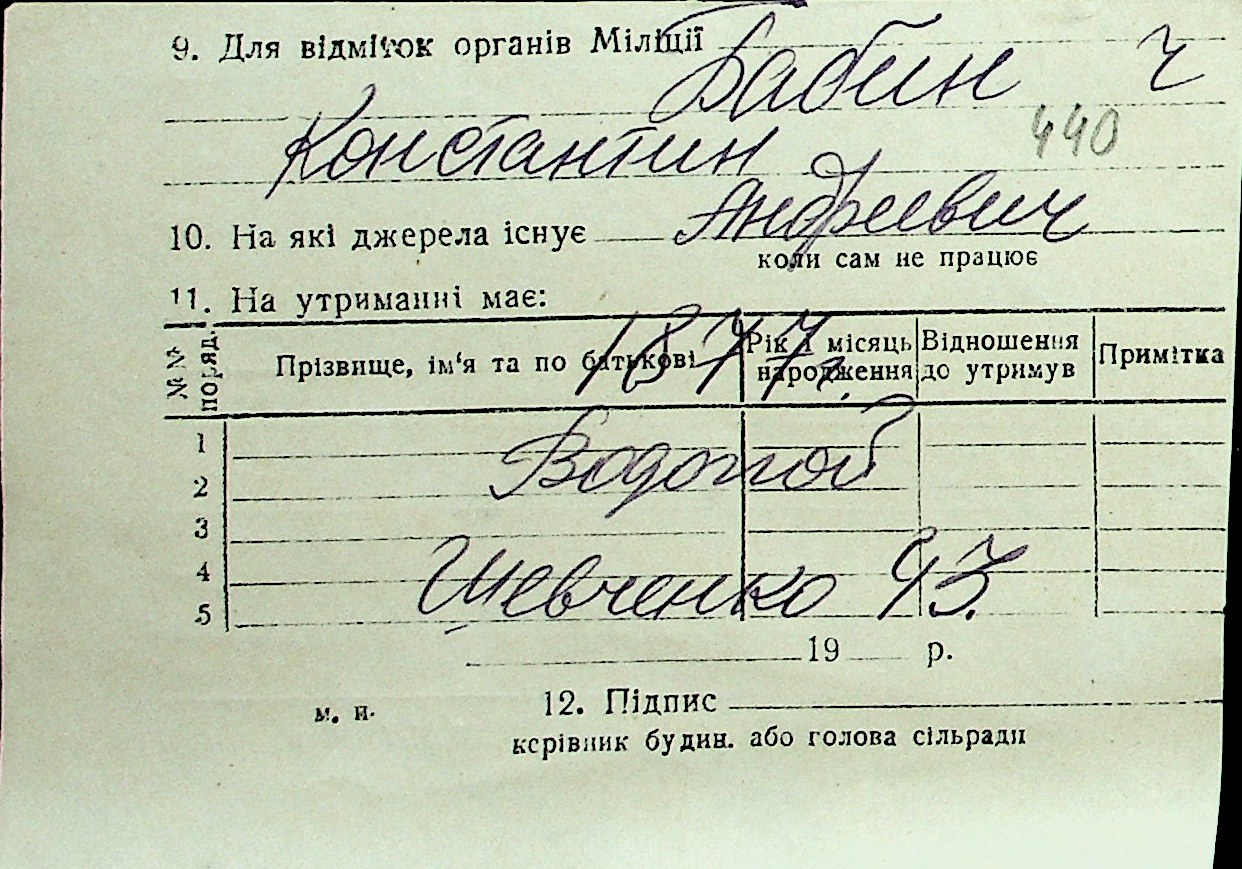 9. Для відміток органів Міліції
Бабин ч
Константин 440
10. На які джерела існує Андреевич
коли сам не працює
11. На утриманні має:
1877г.
№ № поряд. Прізвище, ім‘я та по батькові Рік і місяць народження Відношення до утримув Примітка
1
Водопой
2
3
4
Шевченко 93.
5
19 р.
м. п. 12. Підпис
керівник будин. або голова сільради